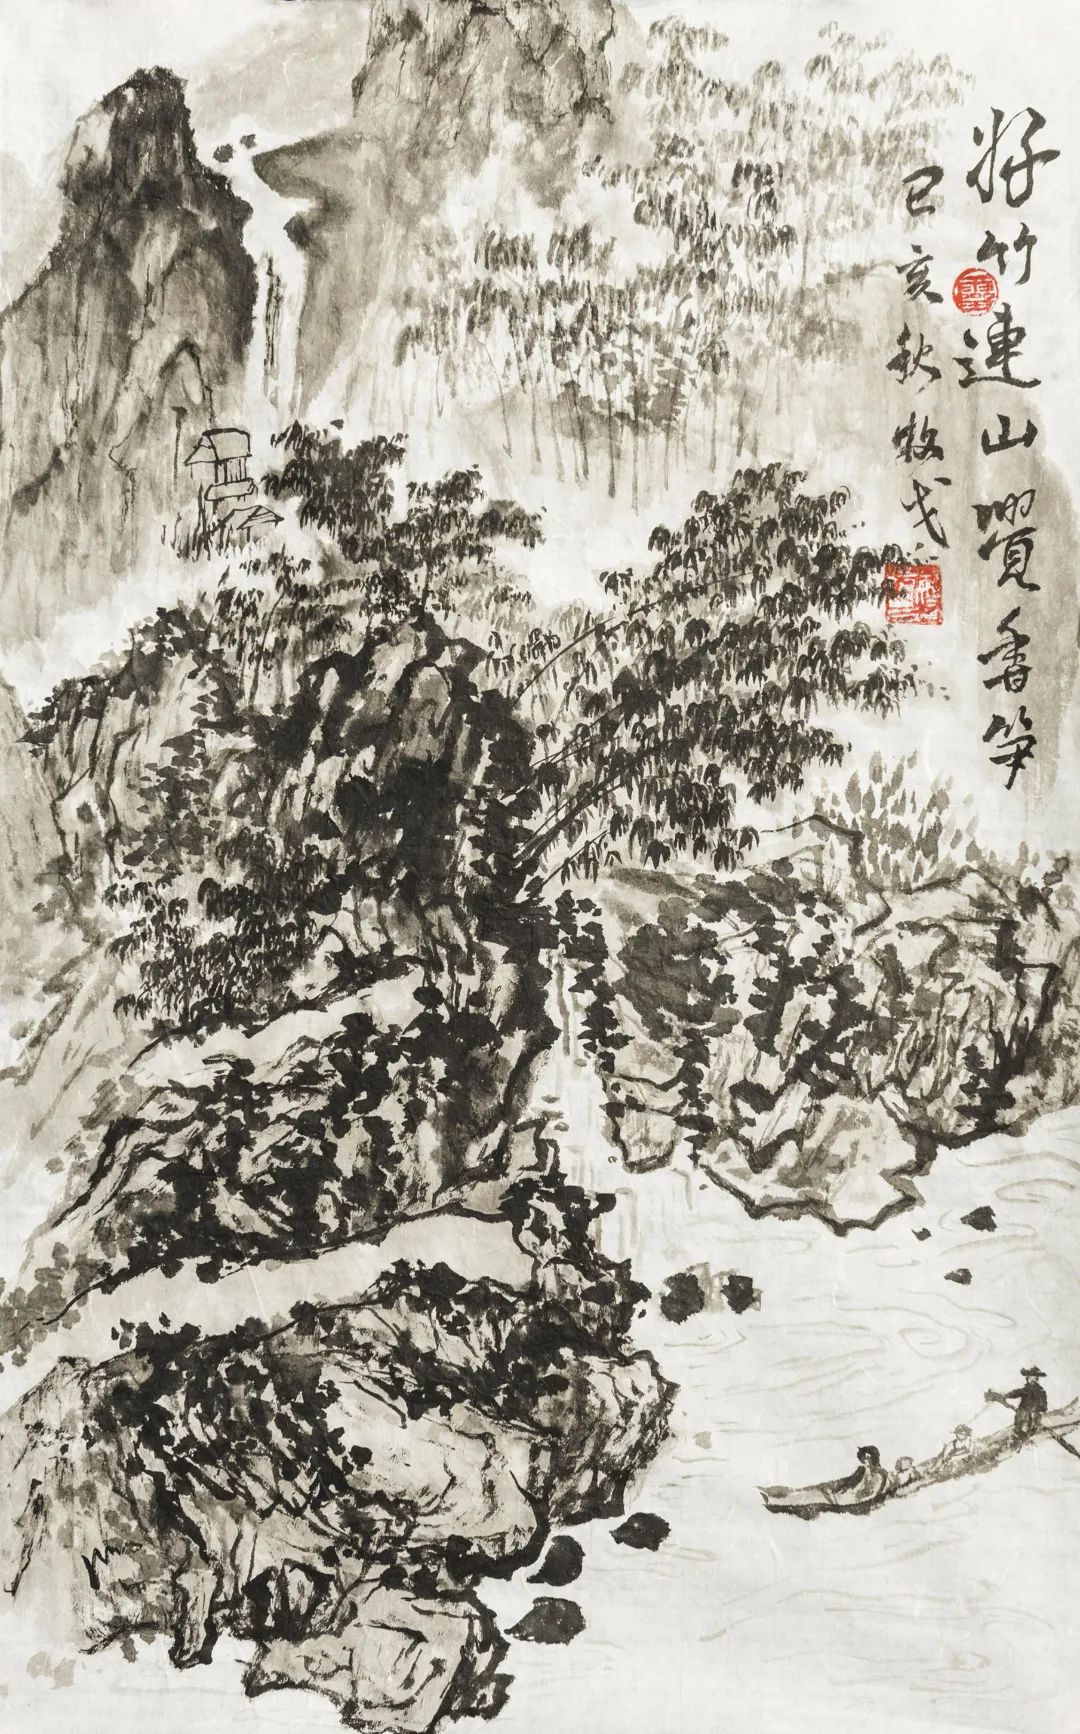 好竹連山覺香笋
己亥秋牧戈